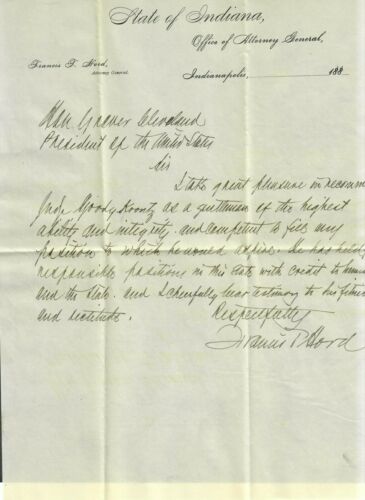 State of Indiana,
Office of Attorney General,
Francis T. Hord,
Attorney General.
Indianapolis, 188
Hon Grover Cleveland
President of the United States
Sir
I take great pleasure in recomm
Judge Goody Koontz as a gentleman of the highest
ability and integrity. and competent to fill any
position to which he would aspire. He has held
responsible positions in this State with credit to
and the State. and I cheerfully bear testimony to his fitness
and rectitude.
Respectfully
Francis T Hord